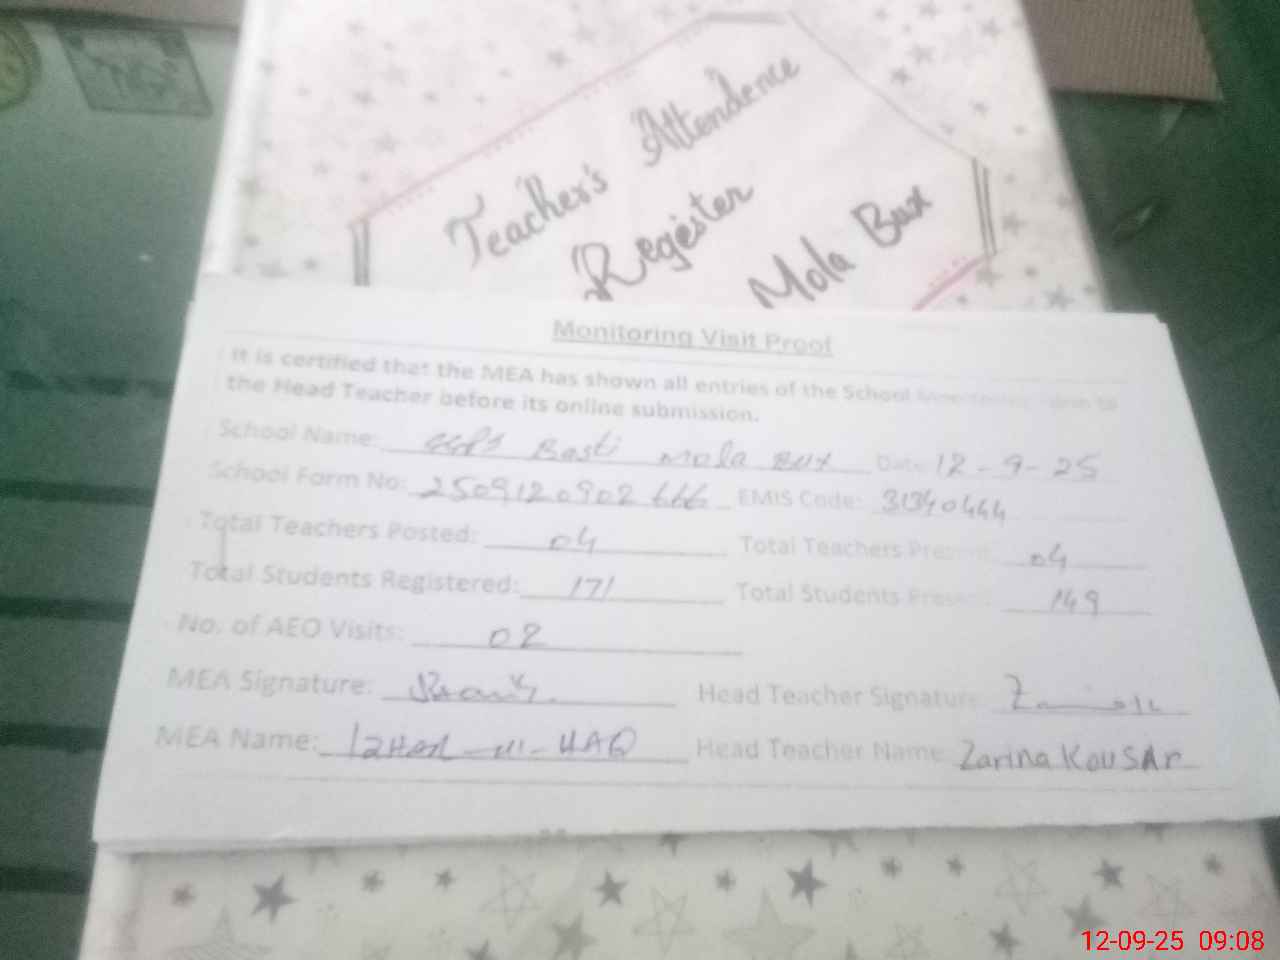 Teacher's Attendence
Regester
Mola Bux
Monitoring Visit Proof
It is certified that the MEA has shown all entries of the School Monitoring Form to
the Head Teacher before its online submission.
School Name: GGPS Basti Mola Bux Date: 12-9-25
School Form No: 2509120902666 EMIS Code: 31340444
Total Teachers Posted: 04 Total Teachers Present: 04
Total Students Registered: 171 Total Students Present: 149
No. of AEO Visits: 02
MEA Signature: Head Teacher Signature:
MEA Name: -ul-HAQ Head Teacher Name: Zarina KouSAr
12-09-25 09:08